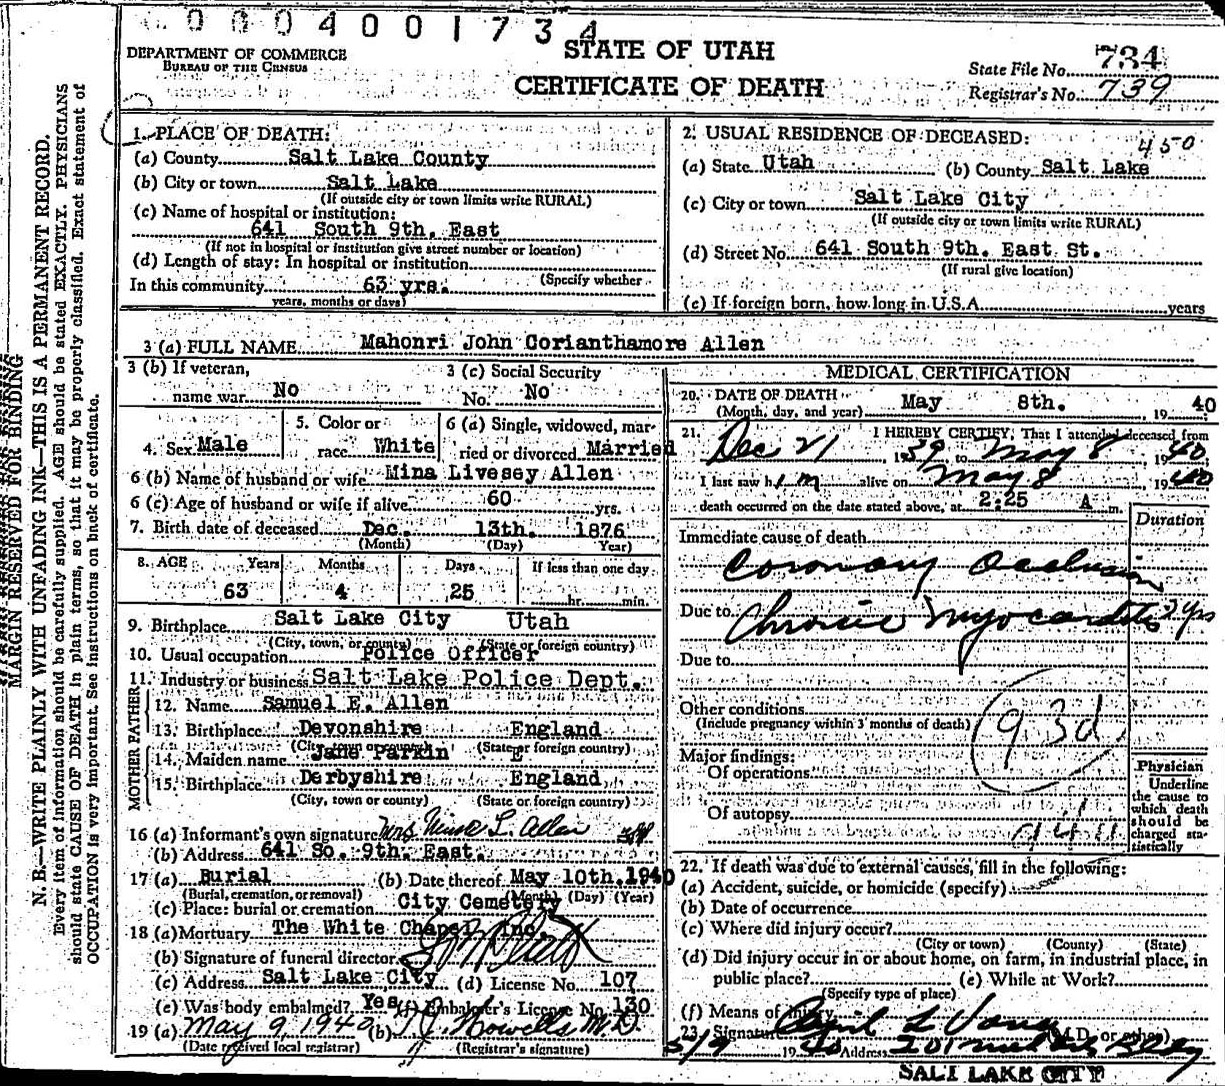 0004001734
DEPARTMENT OF COMMERCE
BUREAU OF THE CENSUS
STATE OF UTAH
CERTIFICATE OF DEATH
State File No. 734
Registrar's No. 739
MARGIN RESERVED FOR BINDING
N. B.—WRITE PLAINLY WITH UNFADING INK—THIS IS A PERMANENT RECORD.
Every item of information should be carefully supplied. AGE should be stated EXACTLY. PHYSICIANS
should state CAUSE OF DEATH in plain terms, so that it may be properly classified. Exact statement of
OCCUPATION is very important. See instructions on back of certificate.
1. PLACE OF DEATH:
(a) County Salt Lake County
(b) City or town Salt Lake
(If outside city or town limits write RURAL)
(c) Name of hospital or institution:
641 South 9th. East
(If not in hospital or institution give street number or location)
(d) Length of stay: In hospital or institution
(Specify whether
In this community 63 yrs.
years, months or days)
2. USUAL RESIDENCE OF DECEASED:
450
(a) State Utah (b) County Salt Lake
(c) City or town Salt Lake City
(If outside city or town limits write RURAL)
(d) Street No. 641 South 9th. East St.
(If rural give location)
(e) If foreign born, how long in U.S.A. years
3 (a) FULL NAME Mahonri John Corianthamore Allen
3 (b) If veteran,
name war No
3 (c) Social Security
No. No
4. Sex Male
5. Color or
race White
6 (a) Single, widowed, mar-
ried or divorced Married
6 (b) Name of husband or wife Mina Livesey Allen
6 (c) Age of husband or wife if alive 60 yrs.
7. Birth date of deceased Dec. 13th. 1876
(Month) (Day) Year)
8. AGE Years Months Days If less than one day
63 4 25 hr. min.
9. Birthplace Salt Lake City Utah
(City, town, or county) (State or foreign country)
10. Usual occupation Police Officer
11. Industry or business Salt Lake Police Dept.
MOTHER FATHER
12. Name Samuel E. Allen
13. Birthplace Devonshire England
(City, town or county) (State or foreign country)
14. Maiden name Jane Parkin E
15. Birthplace Derbyshire England
(City, town or county) (State or foreign country)
16 (a) Informant's own signature Mrs Mina L. Allen
(b) Address 641 So. 9th. East.
17 (a) Burial (b) Date thereof May 10th. 1940
(Burial, cremation, or removal) (Month) (Day) (Year)
(c) Place: burial or cremation City Cemetery
18 (a) Mortuary The White Chapel Inc.
(b) Signature of funeral director
(c) Address Salt Lake City (d) License No. 107
(e) Was body embalmed? Yes (f) Embalmer's License No. 130
19 (a) May 9, 1940 (b) Howells M.D.
(Date received local registrar) (Registrar's signature)
MEDICAL CERTIFICATION
20. DATE OF DEATH
(Month, day, and year) May 8th. , 19 40
21. I HEREBY CERTIFY, That I attended deceased from
Dec 21, 1939, to May 8, 1940
I last saw him alive on May 8, 1940
death occurred on the date stated above, at 2:25 A m.
Duration
Immediate cause of death
Coronary Occlusion
Due to Chronic myocarditis 2 yrs
Due to
Other conditions
(Include pregnancy within 3 months of death)
93d
Major findings:
Of operations
Of autopsy
Physician
Underline
the cause to
which death
should be
charged sta-
tistically
22. If death was due to external causes, fill in the following:
(a) Accident, suicide, or homicide (specify)
(b) Date of occurrence
(c) Where did injury occur?
(City or town) (County) (State)
(d) Did injury occur in or about home, on farm, in industrial place, in
public place? (e) While at Work?
(Specify type of place)
(f) Means of injury
23. Signature L (M.D. or other)
5/9 1940 Address
SALT LAKE CITY